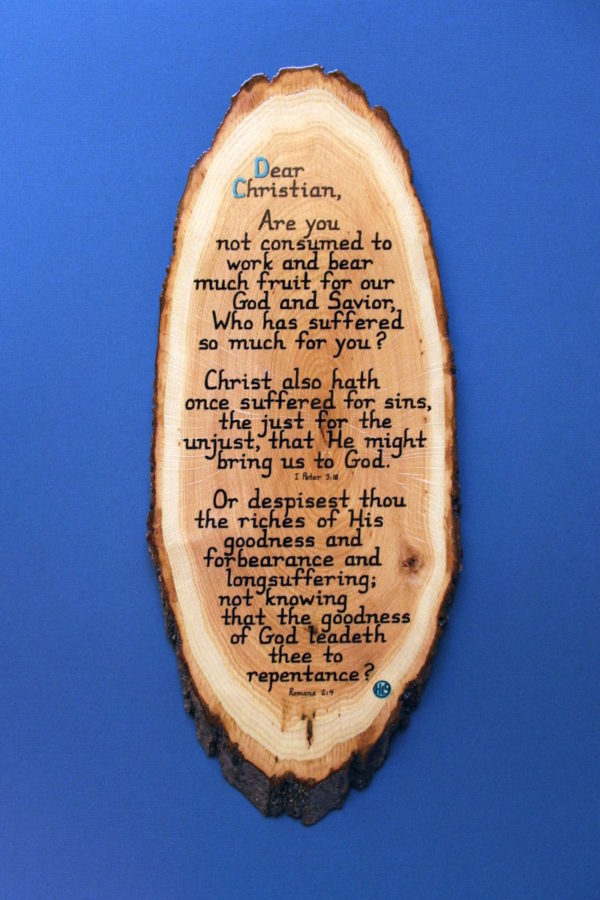 Dear
Christian,
Are you
not consumed to
work and bear
much fruit for our
God and Savior,
Who has suffered
so much for you?
Christ also hath
once suffered for sins,
the just for the
unjust, that He might
bring us to God.
I Peter 3:18
Or despisest thou
the riches of His
goodness and
forbearance and
longsuffering;
not knowing
that the goodness
of God leadeth
thee to
repentance?
Romans 2:4